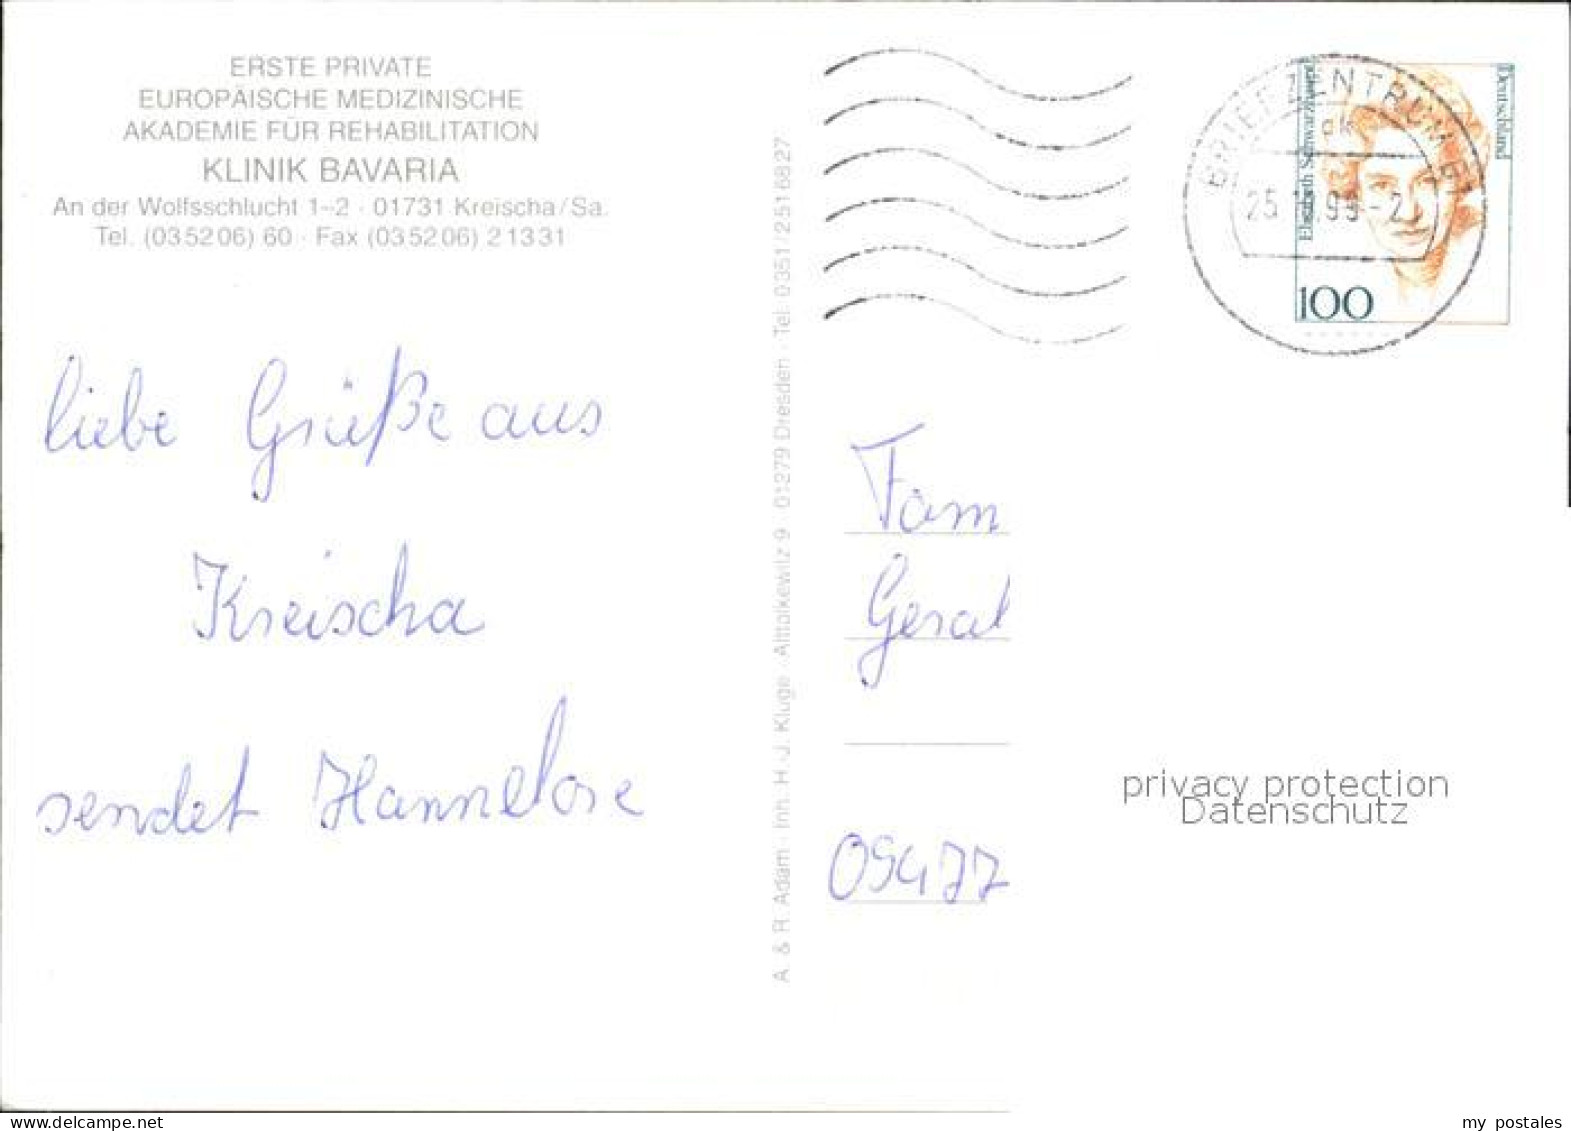 ERSTE PRIVATE
EUROPÄISCHE MEDIZINISCHE
AKADEMIE FÜR REHABILITATION
KLINIK BAVARIA
An der Wolfsschlucht 1–2 · 01731 Kreischa/Sa.
Tel. (035206) 60 · Fax (035206) 21331
liebe Grüße aus
Kreischa
sendet Hannelore
A. & R. Adam · Inh. H.-J. Kluge · Alttolkewitz 9 · 01279 Dresden · Tel. 0351/2516827
BRIEFZENTRUM
Elisabeth Schwarzhaupt
Deutschland
100
Fam
Geral
09477
privacy protection
Datenschutz
delcampe.net
my_postales